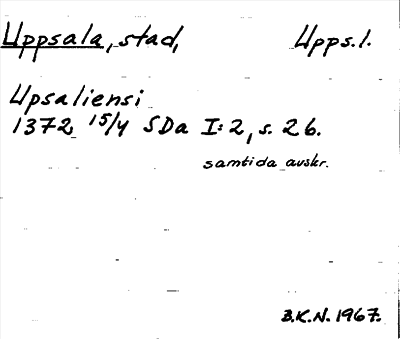 Uppsala, stad, Upps.l.
Upsaliensi
1372 15/4 SDa I:2, s. 26.
samtida avskr.
B.K.N. 1967.